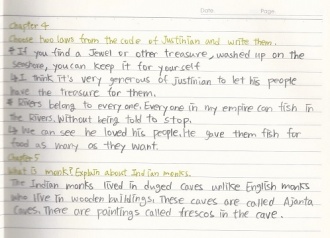 Date Page
Chapter 4
Choose two laws from the code of Justinian and write them.
* If you find a Jewel or other treasure, washed up on the
seashore, you can keep it for yourself
↳ I think it's very generous of Justinian to let his people
have the treasure for them.
* Rivers belong to everyone. Everyone in my empire can fish in
the Rivers. Without being told to stop.
↳ We can see he loved his people. He gave them fish for
food as many as they want.
Chapter 5
What is monk? Explain about Indian monks.
The Indian monks lived in duged caves unlike English monks
who live in wooden buildings. These caves are called Ajanta
Caves. There are paintings called frescos in the cave.